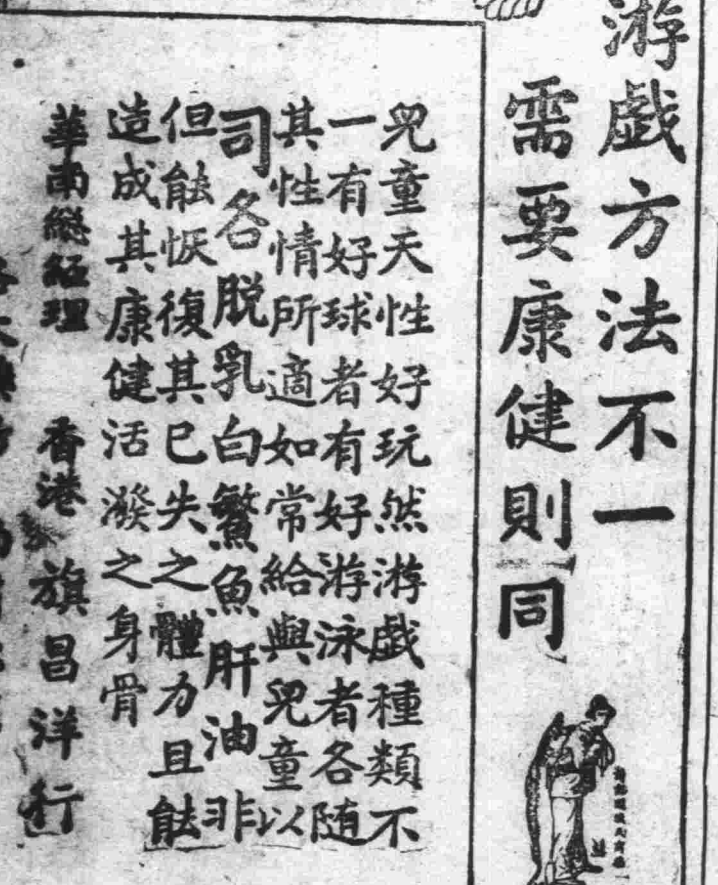 游戲方法不一
需要康健則同
兒童天性好玩然游戲種類不
一有好球者有好游泳者各随
其性情所適如常給與兒童以
司各脫乳白鰵魚肝油非
但能恢復其已失之體力且能
造成其康健活潑之身骨
華南總經理 香港 旗昌洋行